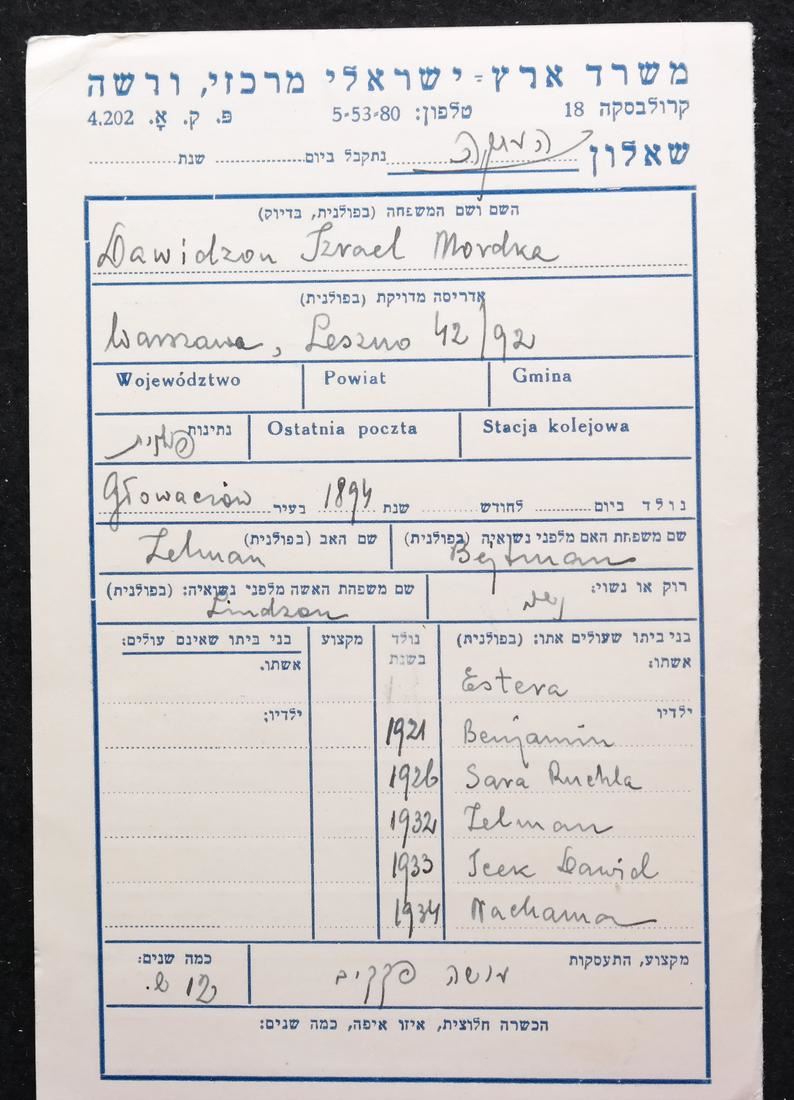 משרד ארץ=ישראלי מרכזי, ורשה
קרולבסקה 18 טלפון: 5-53-80 פ. ק. אָ. 4.202
שאלון העתקה נתקבל ביום שנת
השם ושם המשפחה (בפולנית, בדיוק)
Dawidzon Izrael Mordka
אדריסה מדויקת (בפולנית)
Warszawa, Leszno 42/92
Województwo Powiat Gmina
נתינות פולנית Ostatnia poczta Stacja kolejowa
נולד ביום לחודש שנת 1894 בעיר Głowaczów
שם משפחת האם מלפני נשואיה (בפולנית) Bejtman שם האב (בפולנית) Zelman
רוק או נשוי: נשוי שם משפחת האשה מלפני נשואיה: (בפולנית) Lindzon
בני ביתו שעולים אתו: (בפולנית) נולד בשנת מקצוע בני ביתו שאינם עולים:
אשתו: Estera אשתו.
ילדיו Benjamin 1921 ילדיו:
Sara Ruchla 1926
Zelman 1932
Icek Dawid 1933
Nachama 1934
מקצוע, התעסקות עושה פקקים כמה שנים: 12 ש.
הכשרה חלוצית, איזו איפה, כמה שנים: